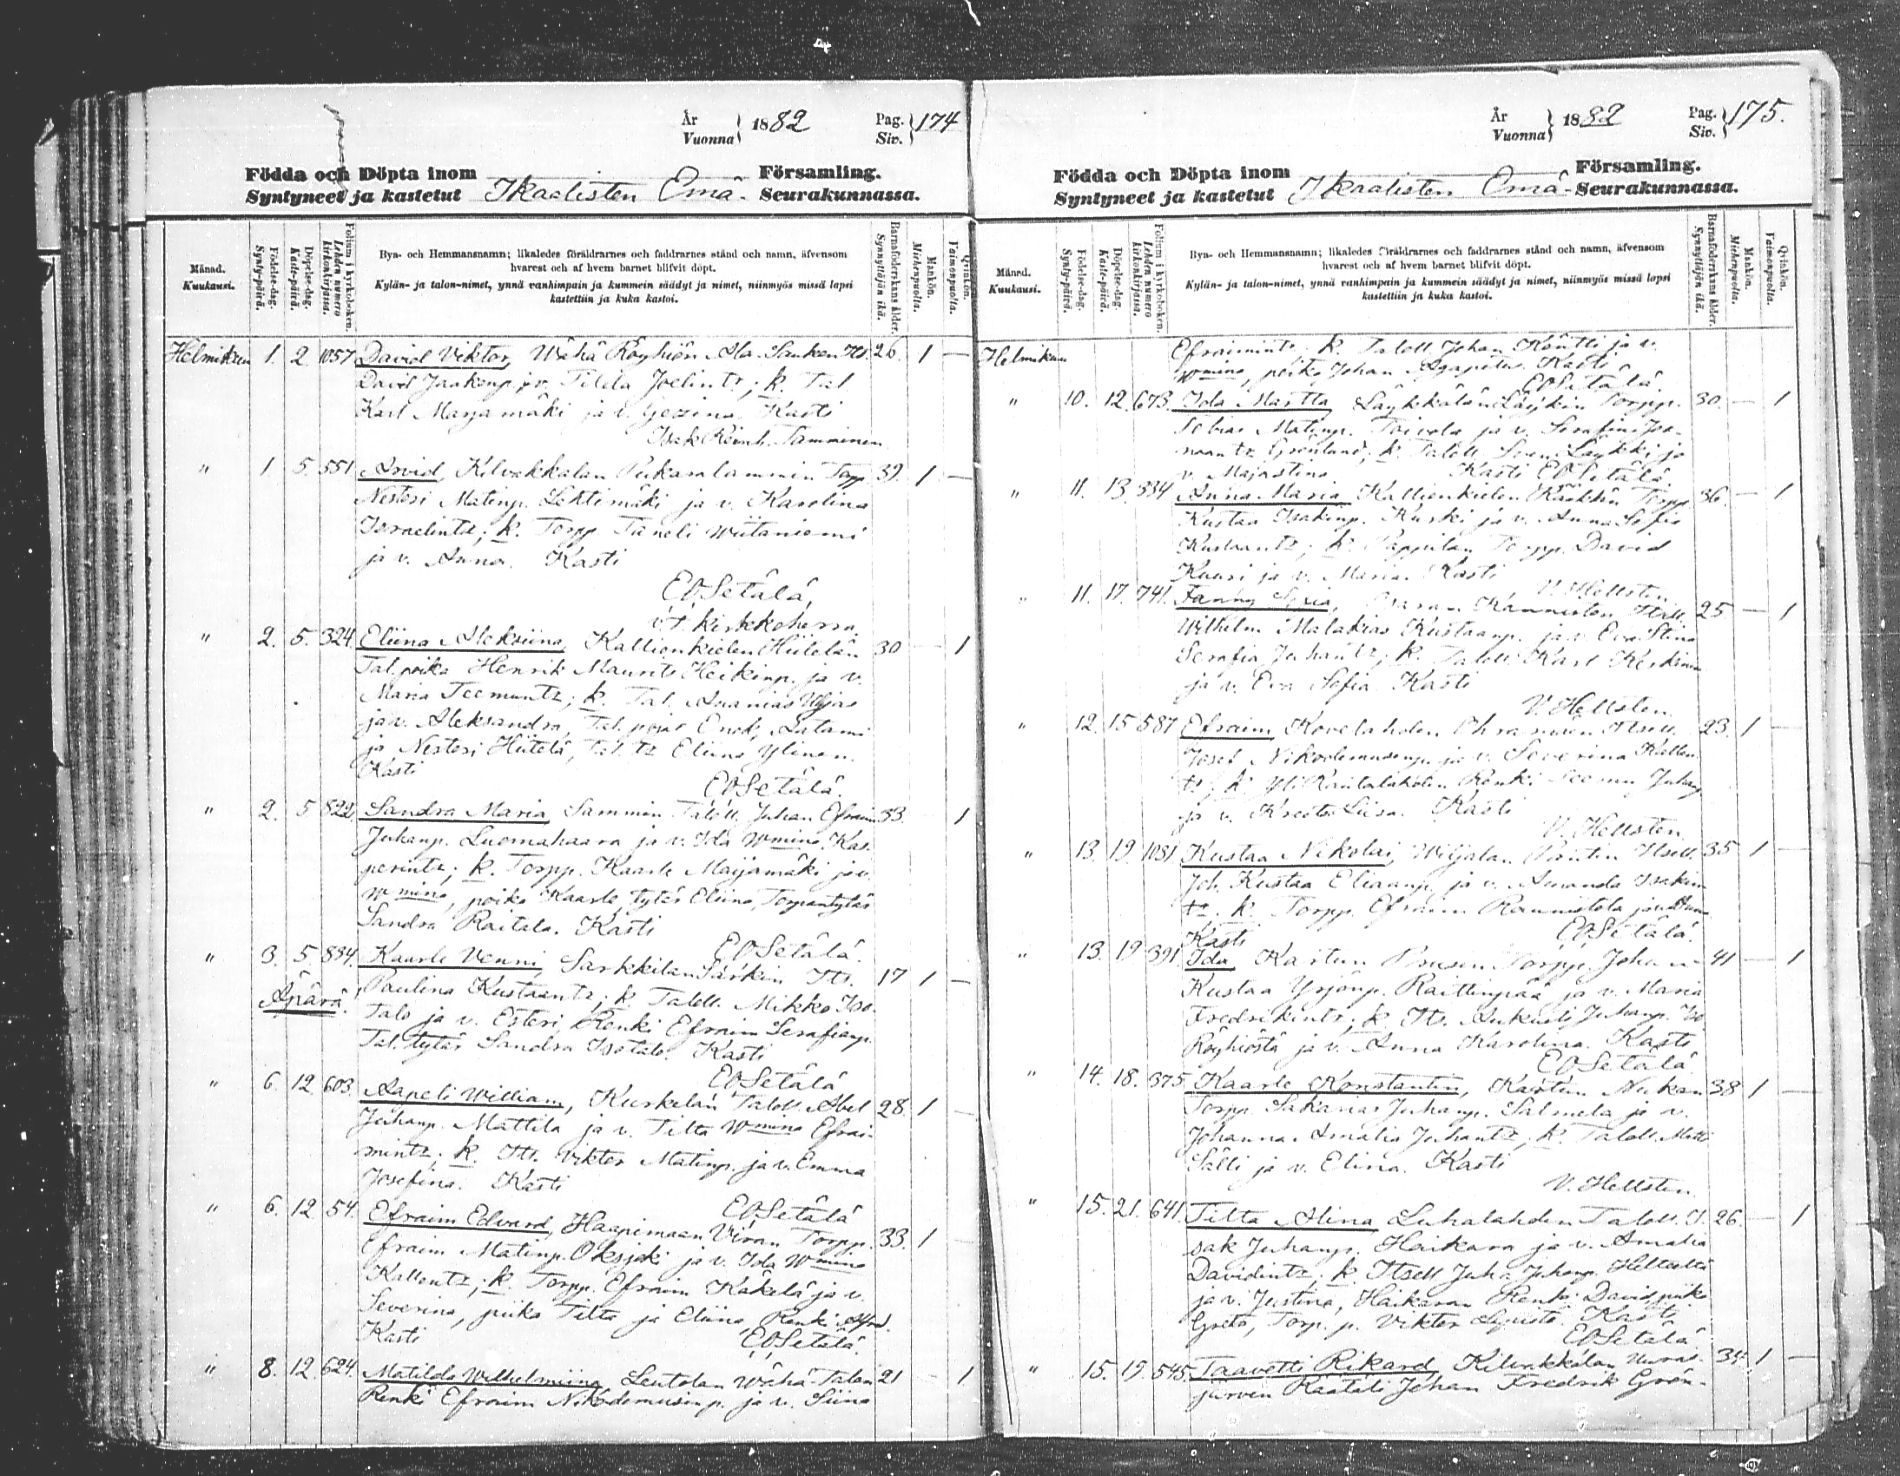 År
Vuonna } 1882
Pag.
Siv. } 174
Födda och Döpta inom Ikaalisten Emä- Församling.
Syntyneet ja kastetut Seurakunnassa.
Månad.
Kuukausi.
Födelse-dag.
Synty-päivä.
Döpelse-dag.
Kaste-päivä.
Folium i kyrkoboken.
Lehden numero kirkonkirjassa.
Bya- och Hemmansnamn; likaledes föräldrarnes och faddrarnes stånd och namn, äfvensom
hvarest och af hvem barnet blifvit döpt.
Kylän- ja talon-nimet, ynnä vanhimpain ja kummein säädyt ja nimet, niinmyös missä lapsi
kastettiin ja kuka kastoi.
Barnaföderskans ålder.
Synnyttäjän ikä.
Mankön.
Miehenpuolta.
Qvinkön.
Vaimonpuolta.
Helmikuu 1. 2. 1057 David Viktor, Wähä Röyhiön Ala-Sauken Its. 26. 1 —
David Jaakonp. ja v. Tilda Joelintr; k. Tal
Karl Marjamäki ja v. Gezina. Kasti
Isak Reinh. Tamminen
" 1. 5. 551 Arvid, Kilvakkalan Torp. 39. 1 —
Nestori Matinp. Lehtimäki ja v. Karolina
Israelintr; k. Torpp Taneli Wiitaniemi
ja v. Anna. Kasti
E O Setälä
v.t. kirkkoherra
" 2. 5. 324. Eliina Aleksiina, Kallionkielen Hiitelän 30 — 1
Tal. poika Henrik Maurits Heikinp. ja v.
Maria Teemuntr; k. Tal. Ananias Yljas
ja v. Aleksandra, Tal. pojat Enok,
ja Nestori Hiitelä, Tal. tr Eliina Ylinen.
Kasti
E O Setälä.
" 2. 5 822. Sandra Maria, Sammin Taloll. Juhan Efraim 33. 1
Juhanp. Luomahaara ja v. Ida Wmina Kas-
perintr; k. Torpp. Kaarle Maijamäki ja v.
Wmina, poika Kaarle, tytär Eliina, Torpantytär
Sandra Raitala. Kasti
E O Setälä.
" 3. 5 834. Kaarle Venni, Särkkilän Särkin Its. 17 1 —
Äpärä.
Paulina Kustaantr; k. Taloll. Mikko Iso-
talo ja v. Esteri, Renki Efraim Serafianp.
Tal. tytär Sandra Isotalo. Kasti
E O Setälä
" 6. 12 603. Aapeli William, Kurkelan Taloll. Abel 28. 1 —
Juhanp. Mattila ja v. Tilta Wmina Efrai-
mintr. k. Its. Viktor Matinp. ja v. Emma
Josefina. Kasti
E O Setälä
" 6. 12 54. Efraim Edvard, Haapimaan Viran Torpp. 33. 1 —
Efraim Matinp. Oksjoki ja v. Ida Wmina
Kallentr; k. Torpp. Efraim Käkelä ja v.
Severina, piika Tilta ja Eliina, Renki Alfred.
Kasti E O Setälä.
" 8. 12. 624. Matilda Wilhelmiina, Leutolan Wähä-Talon 21 — 1
Renki Efraim Nikodemusenp. ja v. Siina
År
Vuonna } 1882
Pag.
Siv. } 175.
Födda och Döpta inom Ikaalisten Emä- Församling.
Syntyneet ja kastetut Seurakunnassa.
Månad.
Kuukausi.
Födelse-dag.
Synty-päivä.
Döpelse-dag.
Kaste-päivä.
Folium i kyrkoboken.
Lehden numero kirkonkirjassa.
Bya- och Hemmansnamn; likaledes föräldrarnes och faddrarnes stånd och namn, äfvensom
hvarest och af hvem barnet blifvit döpt.
Kylän- ja talon-nimet, ynnä vanhimpain ja kummein säädyt ja nimet, niinmyös missä lapsi
kastettiin ja kuka kastoi.
Barnaföderskans ålder.
Synnyttäjän ikä.
Mankön.
Miehenpuolta.
Qvinkön.
Vaimonpuolta.
Helmikuu Efraimintr. k. Taloll. Johan Köntti ja v.
Wmina, poika Johan Agapetus. Kasti
E O Setälä.
" 10. 12. 673. Ida Martta, Läykkälän Läykin Torpp. 30. — 1
Tobias Matinp. Toivola ja v. Serafina Joa-
naantr Grönlund; k. Taloll. Sven Läykki ja
v. Majastina Kasti E O Setälä.
" 11. 13. 334 Anna Maria, Kallionkielen Torpp. 36. — 1
Kustaa Isakinp. Kuuski ja v. Anna Sofia
Kustaantr; k. Pappilan Torpp. David
Kuusi ja v. Maria. Kasti
V. Hellsten.
" 11. 17. 741. Fanny 25 — 1
Wilhelm Malakias Kustaanp. ja v. Eva Stina
Serafia Juhantr; k. Taloll. Karl Keskinen
ja v. Eva Sofia. Kasti
V. Hellsten.
" 12. 15 587 Efraim, Kovelahden Itsell. 23. 1 —
Josef Nikodemusenp. ja v. Severina Kallen-
tr; k. Renki Teemu Juhanp
ja v. Kreeta Liisa. Kasti
V. Hellsten.
" 13. 19. 1081 Kustaa Nikolai, Wiljalan Itsell. 35 1 —
Joh. Kustaa Eliaanp. ja v. Amanda Isakin-
tr. k. Torpp. Efraim Rannistola ja v.
Kasti E O Setälä.
" 13. 19 391. Ida, Kartun Torpp. Johan 41 — 1
Kustaa Yrjönp. Raittinpää ja v. Maria
Fredrikintr; k. Its. Aukusti Juhanp. Iso
Röyhiöstä ja v. Anna Karolina. Kasti
E O Setälä
" 14. 18. 375. Kaarle Konstantin, Kartun 38 1 —
Torpp. Sakarias Juhanp. Salmela ja v.
Johanna Amalia Juhantr; k. Taloll. Matti
Sälli ja v. Elina. Kasti
V. Hellsten.
" 15. 21. 641. Tilta Alina, Luhalahden Taloll. I- 26. — 1
sak Juhanp. Haikara ja v. Amalia
Davidintr; k. Itsell Juha Juhanp.
ja v. Justina, Haikaran Renki David, piika
Greta, Torp. p. Viktor. Kasti
E O Setälä
" 15. 19. 545. Taavetti Rikard, Kilvakkalan 34. 1 —
järven Räätäli Johan Fredrik Grön-